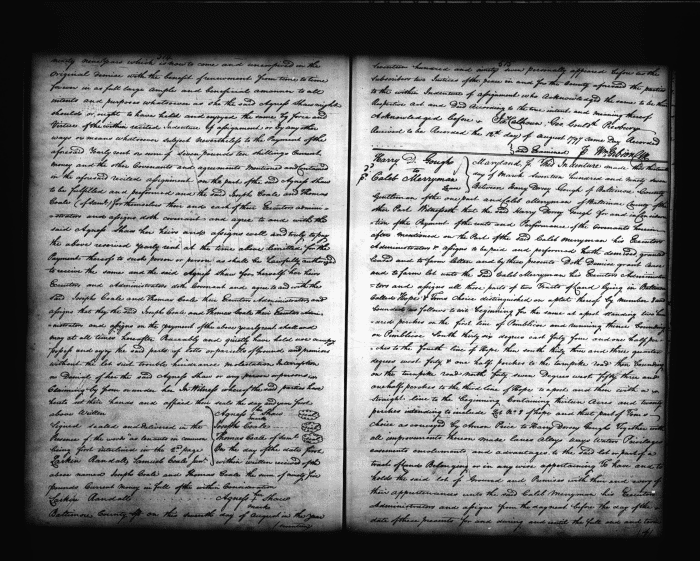 ninety nine years which is now to come and unexpired in the
Original demise with the benefit of renewment from time to time
forever in as full large ample and beneficial amanner to all
intents and purposes whatsoever as she the said Agness Shaw might
should or ought to have held and enjoyed the same by force and
Virtue of the within recited indenture of assignment or by any other
ways or means whatsoever subject Nevertheless to the Payment of the
aforesaid Yearly rent or sum of Seven pounds ten shillings Current
money and the other Covenants and agreements mentioned and Contained
in the aforesaid recited assignment on the part of the said Agness Shaw
to be fulfilled and performed and the said Joseph Coale and Thomas
Coale for themselves their and each of their Executors adminis=
=trators and assigns doth covenant and agree to and with the
said Agness Shaw her heirs and assigns well and truly to pay
the above reserved Yearly rent at the time above limitted for the
Payment thereof to such person or persons as shall be lawfully authorized
to receive the same and the said Agness Shaw for herself her heirs
Executors and Administrators doth Covenant and agree to and with the
said Joseph Coale and Thomas Coale their Executors Administrators and
assigns that they the said Joseph Coale and Thomas Coale their Executors Admin
=istrators and assigns on the payment of the above yearly rent shall and
may at all times hereafter Peaceably and quietly have hold use occupy
possess and enjoy the said parts of lots or parcels of Ground and premises
without the let suit trouble hinderance Molestation Interruption
or Denial of her the said Agness Shaw or any person or persons
Claiming by from or under her In Witness whereof the said parties have
hereto set their hands and affixed their seals the day and year first
above Written
Agness Shaw
mark
Signed sealed and delivered in the
Joseph Coale
Presence of the words as tenants in common
Thomas Coale
being first interlined in the 2d page
On the day of the date first
Larkin Randall
within written received of the
above named Joseph Coale and Thomas Coale the sum of ninety five
pounds Current money in full of the within Consideration
Larkin Randall
Agness Shaw
mark
Baltimore County sst on this seventh day of August in the year
Seventeen hundred and ninety nine personally appeared before us the
subscribers two Justices of the peace in and for the County aforesaid the parties
to the within Indenture of assignment who acknowledged the same to be their
Respective Act and Deed According to the true intent and meaning thereof
Acknowledged before
Js Calhoun Geo Gouldh Presbury
Received to be Recorded the 14th day of August 1799 same day Recorded
and Examined
Wm Gibson Clk
Harry D. Gough
to
Caleb Merryman
Lease
Maryland, ss This Indenture made this third
day of March Seventeen hundred and
Between Harry Dorsey Gough of Baltimore County
Gentleman of the one part and Caleb Merryman of Baltimore County of the
other Part Witnesseth that the said Harry Dorsey Gough for and in Consideration
of the Payment of the rents and Performance of the Covenants herein
after mentioned on the Part of the said Caleb Merryman his Executors
Administrators & assigns to be paid and performed hath demised granted
leased and to farm letten and by these presents Doth Demise grant lease
and to farm let unto the said Caleb Merryman his Executors Administra
tors and assigns all those parts of two Tracts of Land lying in Baltimore
Called Hope & Toms Choice distinguished on a plat thereof by Number 8 and
bounded as follows to wit Beginning for the same at a post standing two hun
dred perches on the first line of Paradice and running thence bounding
on Paradice South thirty six degrees east forty four and one half per
ches to the Fourth line of Hope then south thirty three and three quarter
degrees west forty & one half perches to the turnpike road then bounding
on the turnpike road north forty seven Degrees west fifty three and
one half perches to the third line of Hope to a post and then with a
straight line to the Beginning Containing thirteen Acres and twenty
perches intending to include Lot No 8 of Hope and that part of Toms
Choice as conveyed by Aaron Price to Harry Dorsey Gough Together with
all improvements thereon made lanes Alleys ways Waters Priviledges
easments emoluments and advantages to the said Lot or parcel of a
tract of land Belonging or in any wise appertaining To have and to
hold the said lot of Ground and Premises with their and every of
their appurtenances unto the said Caleb Merryman his Executors
Administrators and assigns from the day next before the day of the
date of these presents for and during and until the full end and term